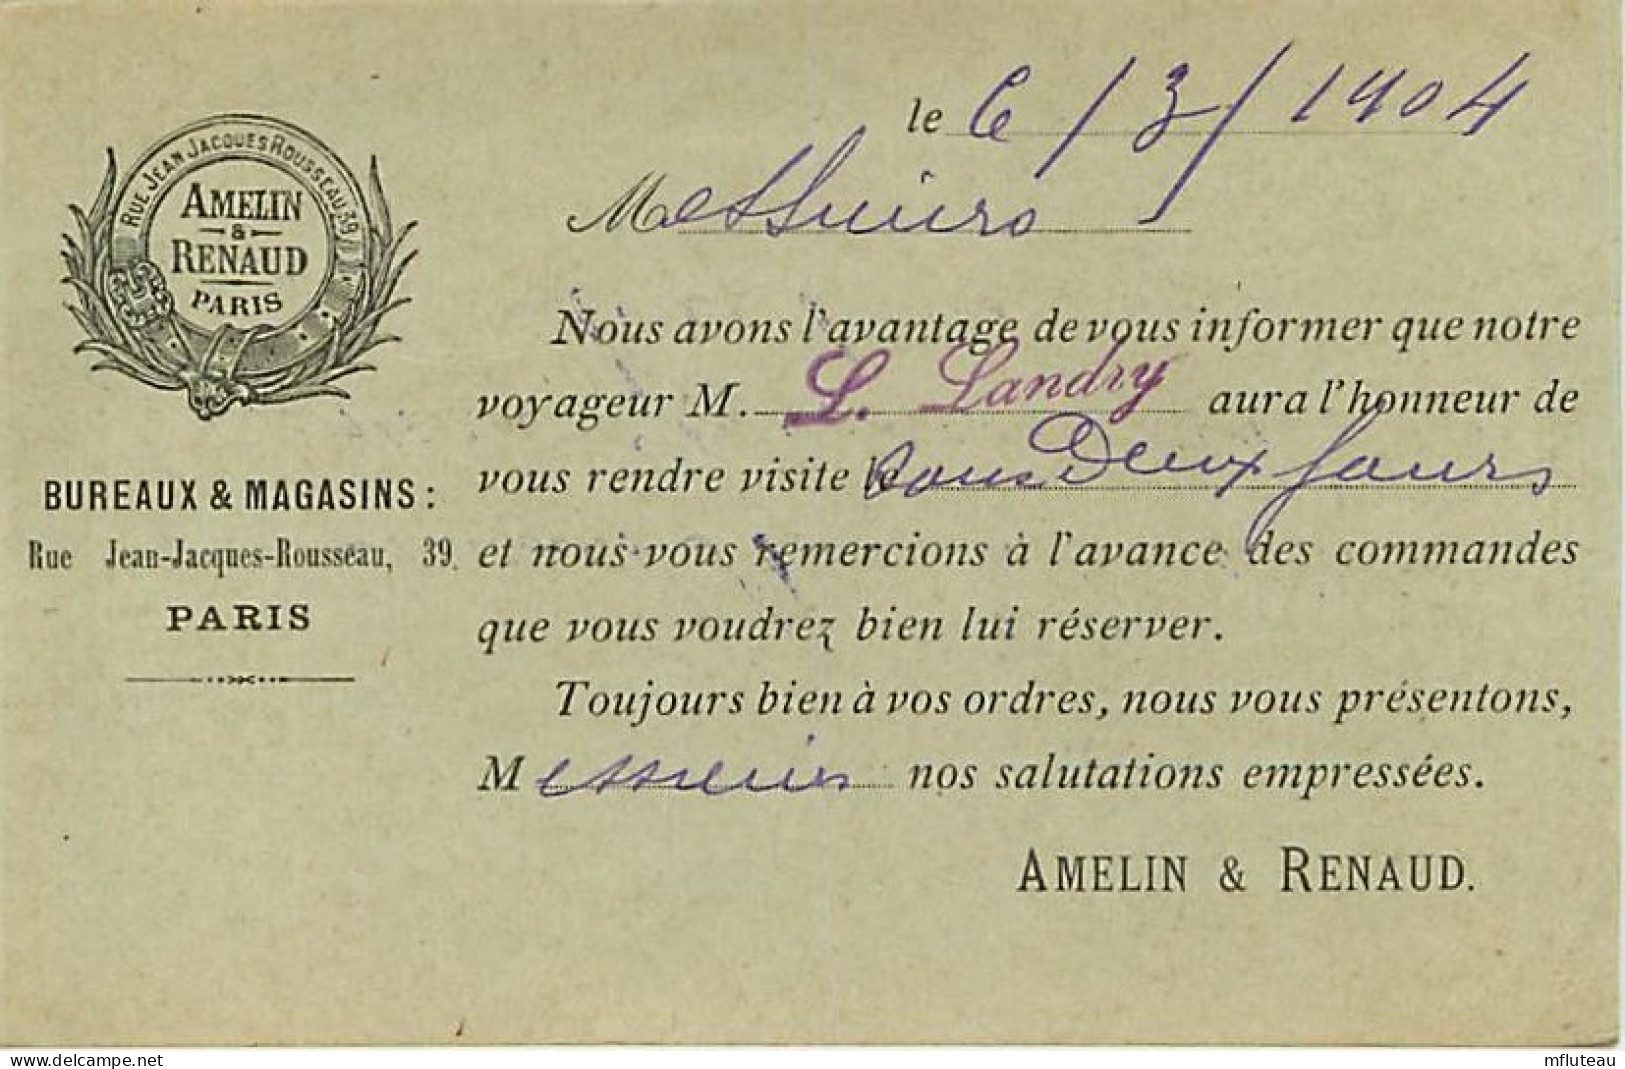 RUE JEAN JACQUES ROUSSEAU. 39
AMELIN
&
RENAUD
PARIS
BUREAUX & MAGASINS :
Rue Jean-Jacques-Rousseau, 39.
PARIS
le 6/3/1904
Messieurs
Nous avons l'avantage de vous informer que notre
voyageur M. L. Landry aura l'honneur de
vous rendre visite le sous Deux Jours
et nous vous remercions à l'avance des commandes
que vous voudrez bien lui réserver.
Toujours bien à vos ordres, nous vous présentons,
Messieurs nos salutations empressées.
AMELIN & RENAUD.
delcampe.net
mfluteau